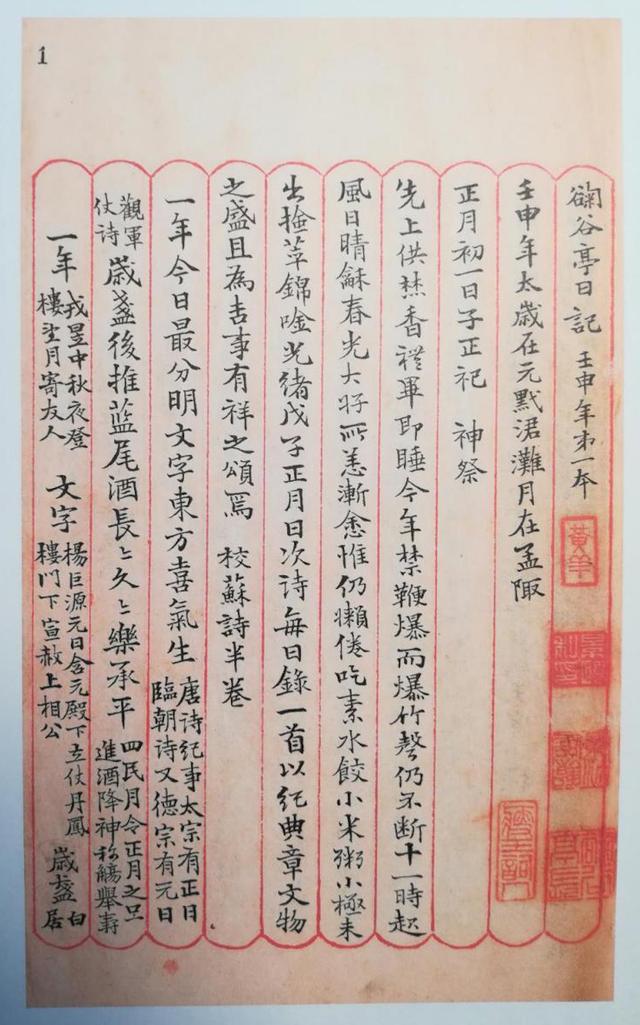 谷亭日記 壬申年第一本
黃羊
壬申年太歲在元默涒灘月在孟陬
正月初一日子正祀 神祭
先上供焚香禮畢即睡今年禁鞭爆而爆竹聲仍不断十一時起
風日晴龢春光大好所恙漸愈惟仍懶倦吃素水餃小米粥小極未
出撿錦唫光緒戊子正月日次詩每日錄一首以紀典章文物
之盛且為吉事有祥之頌焉 校蘇詩半卷
一年今日最分明文字東方喜氣生 唐诗纪事太宗有正日
臨朝诗又德宗有元日
觀軍
仗诗 歲盞後推藍尾酒長〻久〻樂承平 四民月令正月之旦
進酒降神称觴舉壽
一年 戎昱中秋夜澄
樓望月寄友人 文字 楊巨源元日含元殿下立仗丹鳳
樓門下宣赦上相公 歲盞 白
居
1